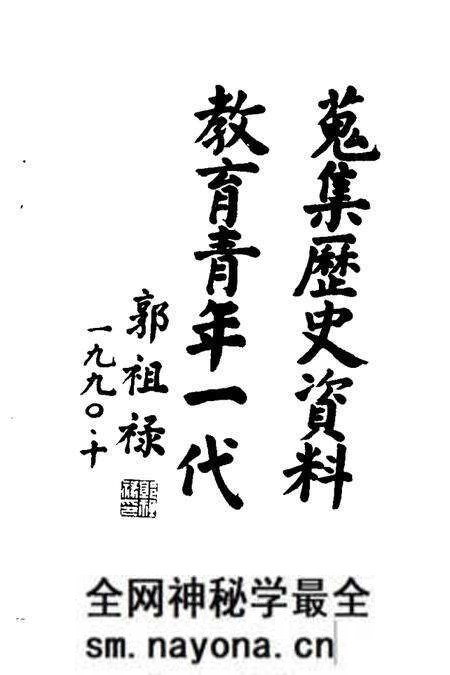 蒐集歷史資料
教育青年一代
郭祖禄
一九九〇·十
全网神秘学最全
sm.nayona.cn